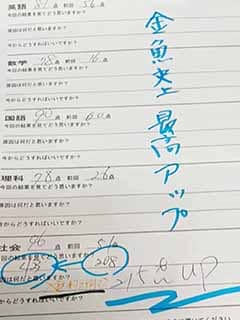 英語 81点 前回 56点
今回の結果を見てどう思いますか?
原因は何だと思いますか?
今からどうすればいいですか?
数学 78点 前回 16点
今回の結果を見てどう思いますか?
原因は何だと思いますか?
今からどうすればいいですか?
国語 90点 前回 60点
今回の結果を見てどう思いますか?
原因は何だと思いますか?
今からどうすればいいですか?
理科 78点 前回 26点
今回の結果を見てどう思いますか?
原因は何だと思いますか?
今からどうすればいいですか?
社会 96点 前回 51点
今回の結果を見てどう思いますか?
原因は何だと思いますか?
今からどうすればいいですか?
金魚史上 最高アップ
423 ← 208
215点UP